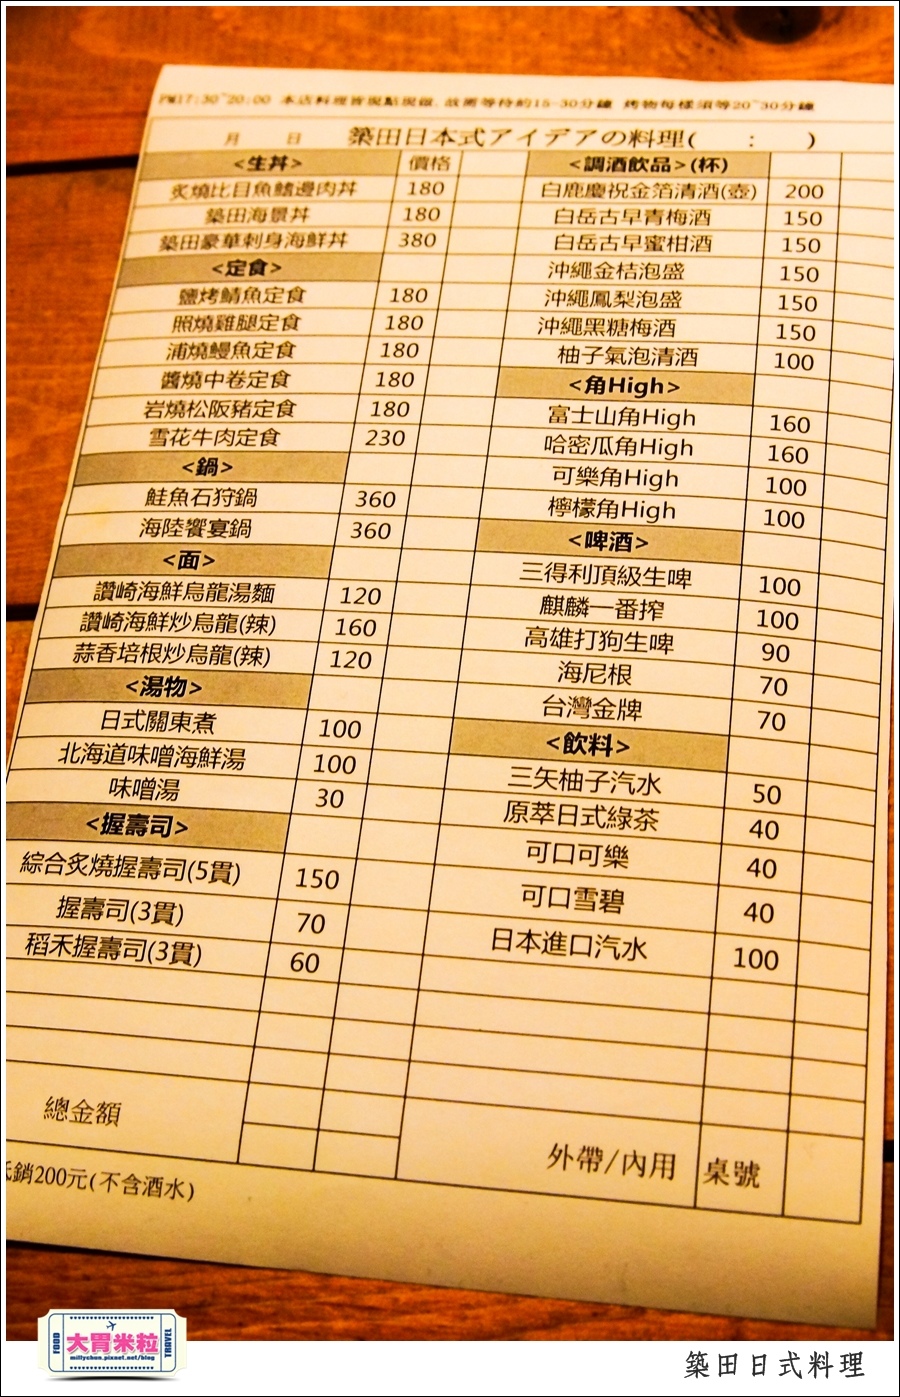 PM17:30~20:00 本店料理皆現點現做,故需等待約15-30分鐘 烤物每樣須等20~30分鐘
月 日 築田日本式アイデアの料理( : )
<生丼> 價格
炙燒比目魚鰭邊肉丼 180
築田海景丼 180
築田豪華刺身海鮮丼 380
<定食>
鹽烤鯖魚定食 180
照燒雞腿定食 180
浦燒鰻魚定食 180
醬燒中卷定食 180
岩燒松阪豬定食 180
雪花牛肉定食 230
<鍋>
鮭魚石狩鍋 360
海陸饗宴鍋 360
<面>
讚崎海鮮烏龍湯麵 120
讚崎海鮮炒烏龍(辣) 160
蒜香培根炒烏龍(辣) 120
<湯物>
日式關東煮 100
北海道味噌海鮮湯 100
味噌湯 30
<握壽司>
綜合炙燒握壽司(5貫) 150
握壽司(3貫) 70
稻禾握壽司(3貫) 60
總金額
<調酒飲品>(杯)
白鹿慶祝金箔清酒(壺) 200
白岳古早青梅酒 150
白岳古早蜜柑酒 150
沖繩金桔泡盛 150
沖繩鳳梨泡盛 150
沖繩黑糖梅酒 150
柚子氣泡清酒 100
<角High>
富士山角High 160
哈密瓜角High 160
可樂角High 100
檸檬角High 100
<啤酒>
三得利頂級生啤 100
麒麟一番搾 100
高雄打狗生啤 90
海尼根 70
台灣金牌 70
<飲料>
三矢柚子汽水 50
原萃日式綠茶 40
可口可樂 40
可口雪碧 40
日本進口汽水 100
外帶/內用 桌號
銷200元(不含酒水)
FOOD 大胃米粒 TRAVEL
millychun.pixnet.net/blog
築田日式料理